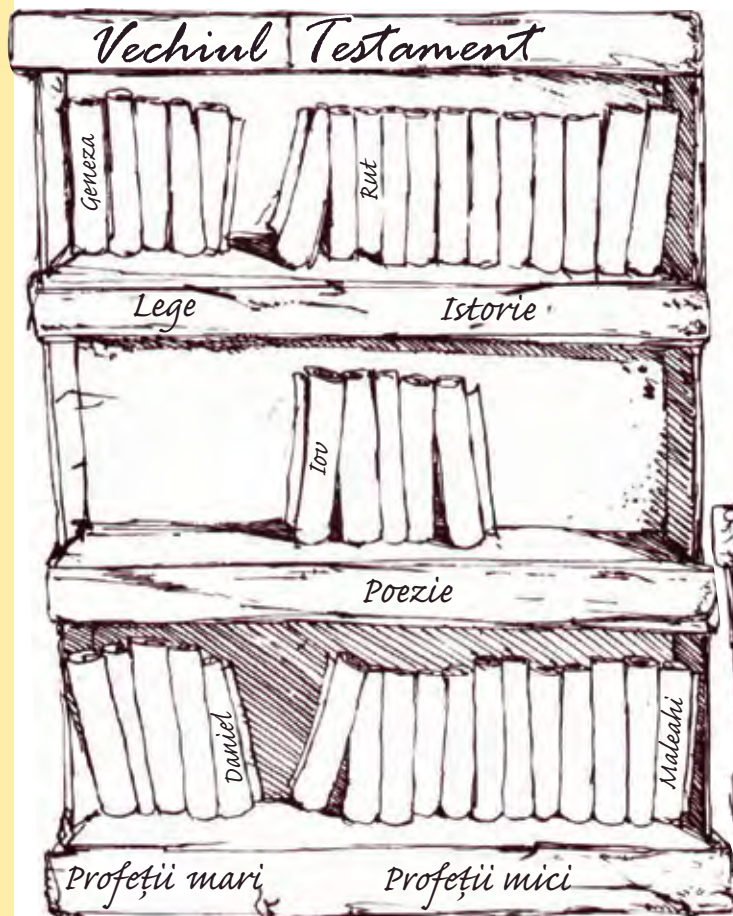 Vechiul Testament
Geneza
Rut
Lege
Istorie
Iov
Poezie
Daniel
Maleahi
Profeții mari
Profeții mici